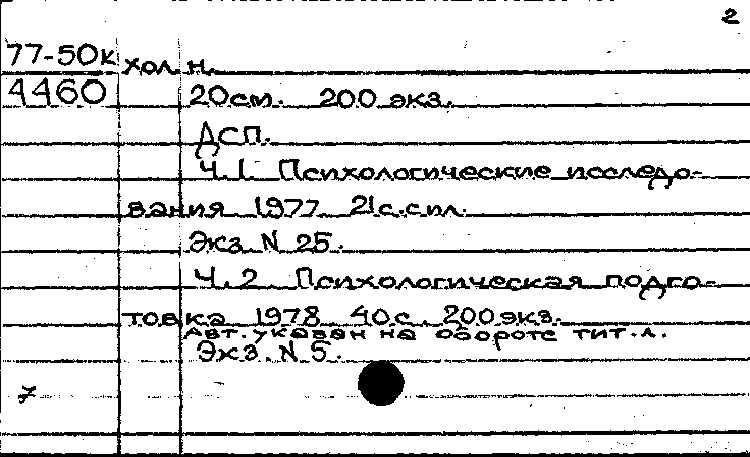 2
77-50к хол. н.
4460 20см. 200 экз.
ДСП.
Ч. 1. Психологические исследо-
вания 1977 21с. с ил.
Экз N 25.
Ч. 2 Психологическая подго-
товка 1978 40с. 200 экз.
Авт. указан на обороте тит. л.
Экз. N 5.
7